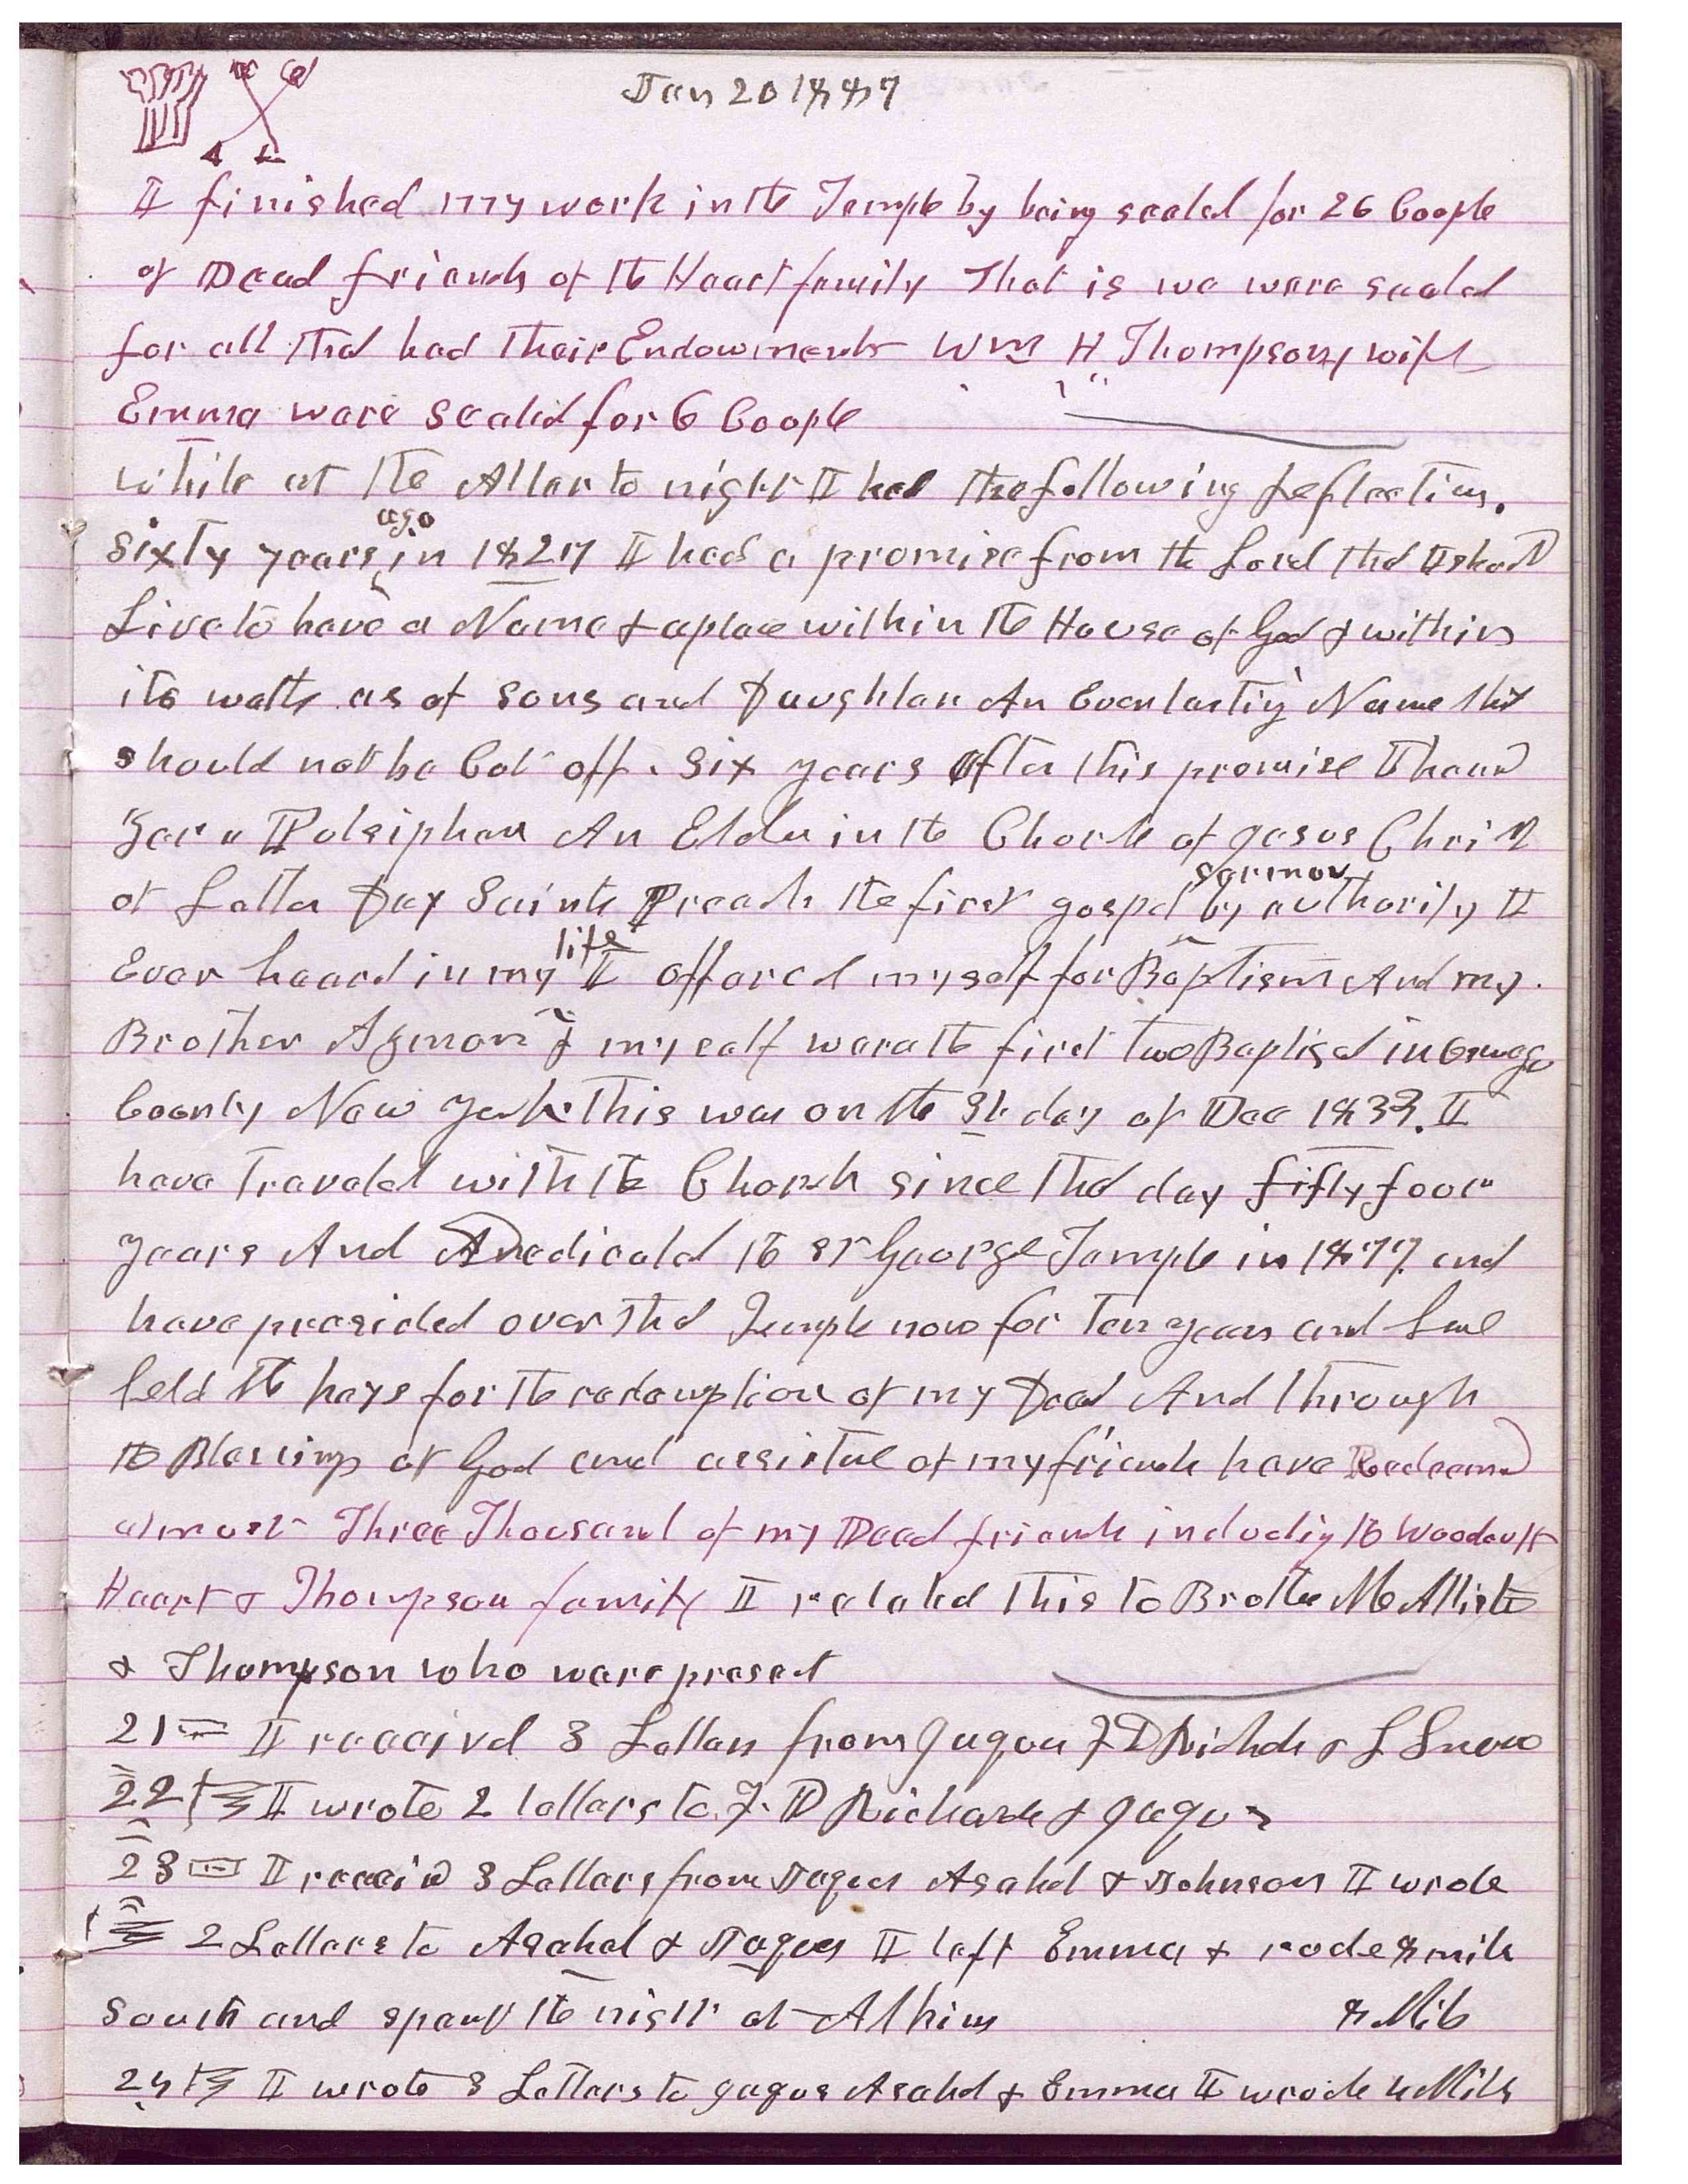 Jan 20 1887
I finished my work in the Temple by being sealed for 26 Coople
of Dead friends of the Haart family That is we were sealed
for all that had their Endowments Wm H Thompson, wife
Emma ware Sealed for 6 Coople
while at the Alter to night I had the following reflections.
Sixty years ago in 1827 I had a promise from the Lord that I should
Live to have a Name & a place within the House of God & within
its walls as of Sons and Daughters An Everlasting Name that
should not be Cut off. Six years after this promise I heard
Zera Pulsipher An Elder in the Church of Jesus Christ
of Latter Day Saints Preach the first gospel sermon by authority I
Ever heard in my life I offered myself for Baptism And my
Brother Azmon & myself ware the first two Baptised in Oswego
County New York. This was on the 31 day of Dec 1833. I
have traveled with the Church since that day fifty foor
years And Dedicated the St George Temple in 1877 and
have presided over that Temple now for Ten years and have
held the keys for the redemption of my Dead And through
the Blessings of God and assistace of my friends have Redeemed
almost Three Thousand of my Dead friends includig the Woodruff
Haart & Thompson family I related this to Brother McAllister
& Thompson who ware present
21 I received 3 Letters from Jaques F D Richards & L Snow
22 I wrote 2 letters to F. D Richards & Jaques
23 I receivd 3 Letters from Jaques Asahel & Johnson I wrote
2 Letters to Asahel & Jaques I left Emma & rode 8 mile
South and spent the night at Atkins 8 Mils
24 I wrote 3 Letters to Jaques Asahel & Emma I wrode 4 Mils